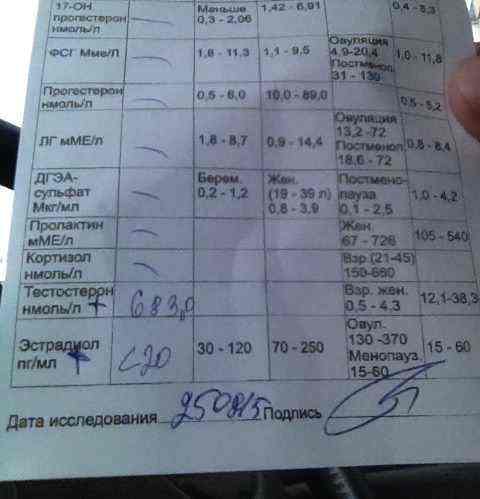 17-ОН Меньше 1,42 - 6,91 0,4 - 8,3
прогестерон 0,3 - 2,06
нмоль/л
ФСГ Мме/Л 1,8 - 11,3 1,1 - 9,5 Овуляция 1,0 - 11,8
4,9-20,4
Постменоп.
31 - 130
Прогестерон 0,5 - 6,0 10,0 - 89,0 0,5 - 5,2
нмоль/л
ЛГ мМЕ/Л 1,8 - 8,7 0,9 - 14,4 Овуляция 0,8 - 8,4
13,2 -72
Постменоп
18,6 - 72
ДГЭА- Берем. Жен. Постмено- 1,0 - 4,2
сульфат 0,2 - 1,2 (19 - 39 л) пауза
Мкг/мл 0,8 - 3,9 0,1 - 2,5
Пролактин Жен. 105 - 540
мМЕ/л 67 - 726
Кортизол Взр.(21-45)
нмоль/л 150-660
Тестостерон 683,0 Взр. жен. 12,1-38,3
нмоль/л + 0,5 - 4.3
Эстрадиол <20 30 - 120 70 - 250 Овул. 15 - 60
пг/мл + 130 -370
Менопауз.
15-60
Дата исследования 250815 Подпись